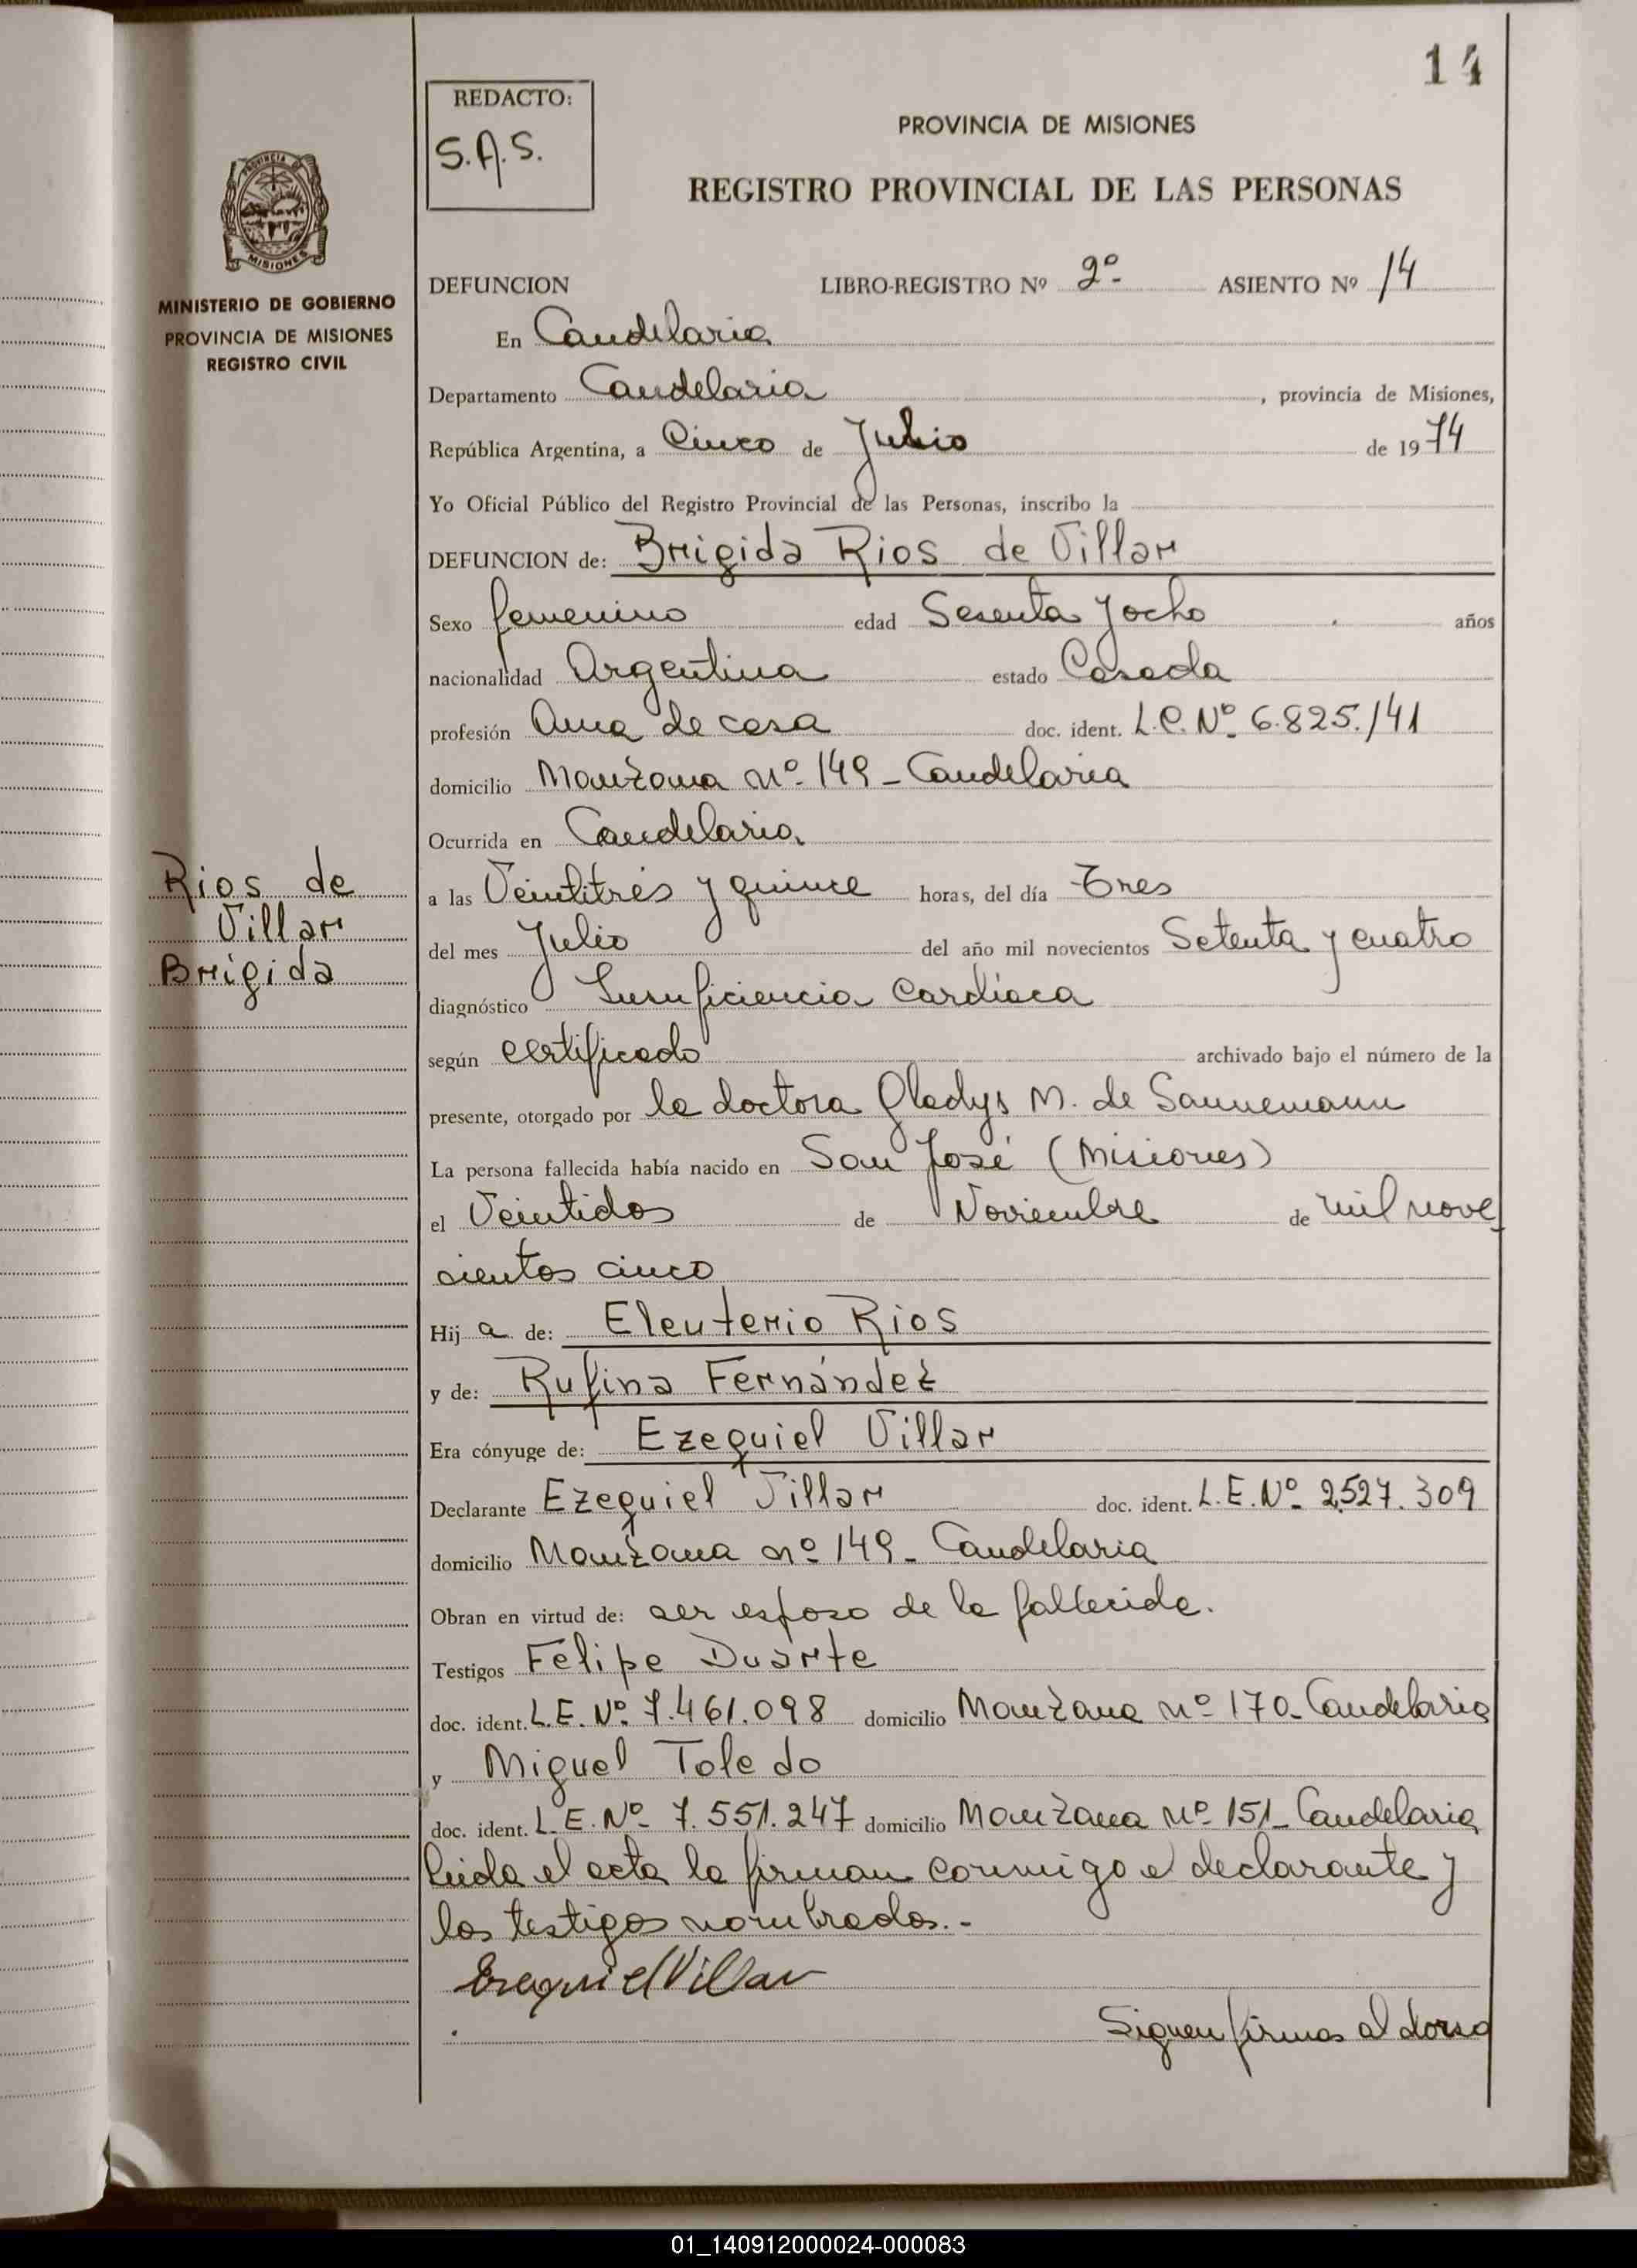 14
REDACTO:
S.A.S.
PROVINCIA DE MISIONES
REGISTRO PROVINCIAL DE LAS PERSONAS
PROVINCIA DE
MISIONES
MINISTERIO DE GOBIERNO
PROVINCIA DE MISIONES
REGISTRO CIVIL
DEFUNCION LIBRO-REGISTRO Nº 2º- ASIENTO Nº 14
En Candelaria
Departamento Candelaria, provincia de Misiones,
República Argentina, a Cinco de Julio de 1974
Yo Oficial Público del Registro Provincial de las Personas, inscribo la
DEFUNCION de: Brigida Rios de Villar
Sexo femenino edad Sesenta y ocho años
nacionalidad Argentina estado Casada
profesión Ama de casa doc. ident. L.C. Nº 6.825.141
domicilio Manzana nº 149 - Candelaria
Ocurrida en Candelaria
a las Veintitrés y quince horas, del día Tres
del mes Julio del año mil novecientos Setenta y cuatro
diagnóstico Insuficiencia Cardíaca
según certificado archivado bajo el número de la
presente, otorgado por la doctora Gladys M. de Sannemann
La persona fallecida había nacido en San José (Misiones)
el Veintidos de Noviembre de mil nove
cientos cinco
Hija de: Eleuterio Rios
y de: Rufina Fernández
Era cónyuge de: Ezequiel Villar
Declarante Ezequiel Villar doc. ident. L.E. Nº 2.527.309
domicilio Manzana nº 149 - Candelaria
Obran en virtud de: ser esposo de la fallecida.
Testigos Felipe Duarte
doc. ident. L.E. Nº 7.461.098 domicilio Manzana nº 170 - Candelaria
y Miguel Toledo
doc. ident. L.E. Nº 7.551.247 domicilio Manzana nº 151 - Candelaria
Leida el acta la firman conmigo el declarante y
los testigos nombrados.-
Ezequiel Villar
Siguen firmas al dorso
Rios de
Villar
Brígida
01_140912000024-000083